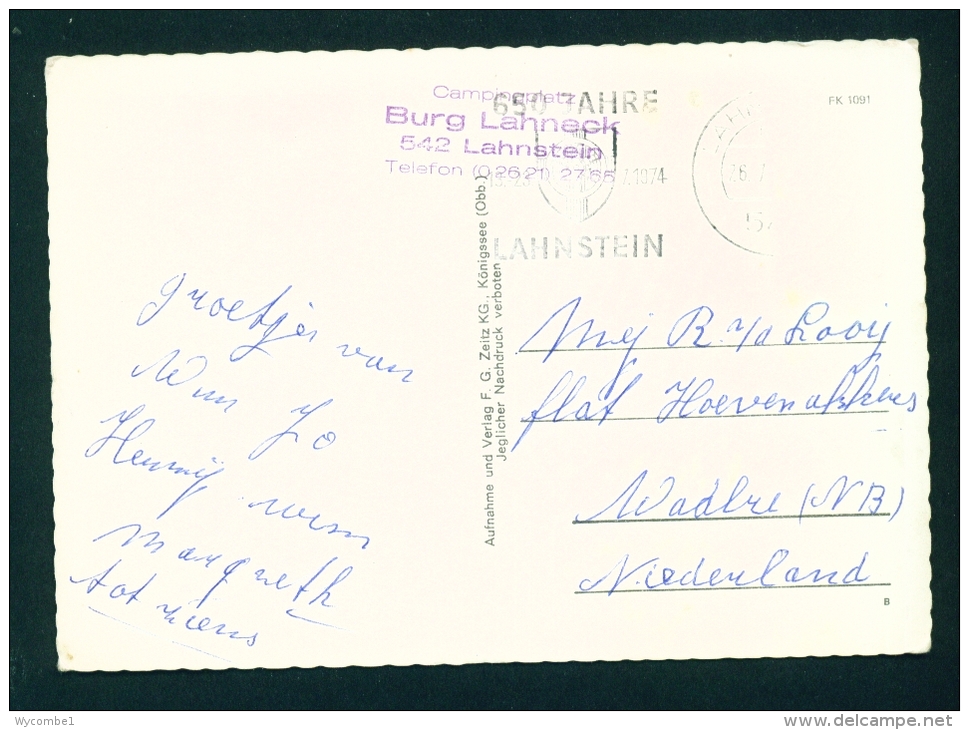 Campingplatz
Burg Lahneck
542 Lahnstein
Telefon (0 26 21) 27 65
650 JAHRE
7.1974
LAHNSTEIN
26.7
FK 1091
groetjes van
Wim Jo
Henny wim
margreth
tot ziens
Aufnahme und Verlag F. G. Zeitz KG., Königssee (Obb.)
Jeglicher Nachdruck verboten
Mej R. v/d Looij
flat Hoevenakkers
Waalre (NB)
Niederland
B
Wycombe1
delcampe.net